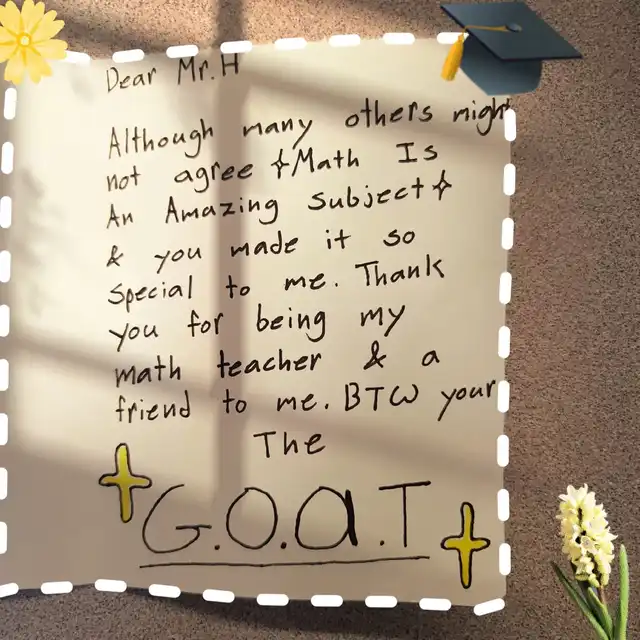 Dear Mr. H
Although many others might
not agree ✧Math Is
An Amazing subject✧
& you made it so
special to me. Thank
you for being my
math teacher & a
friend to me. BTW your
The
G.O.A.T